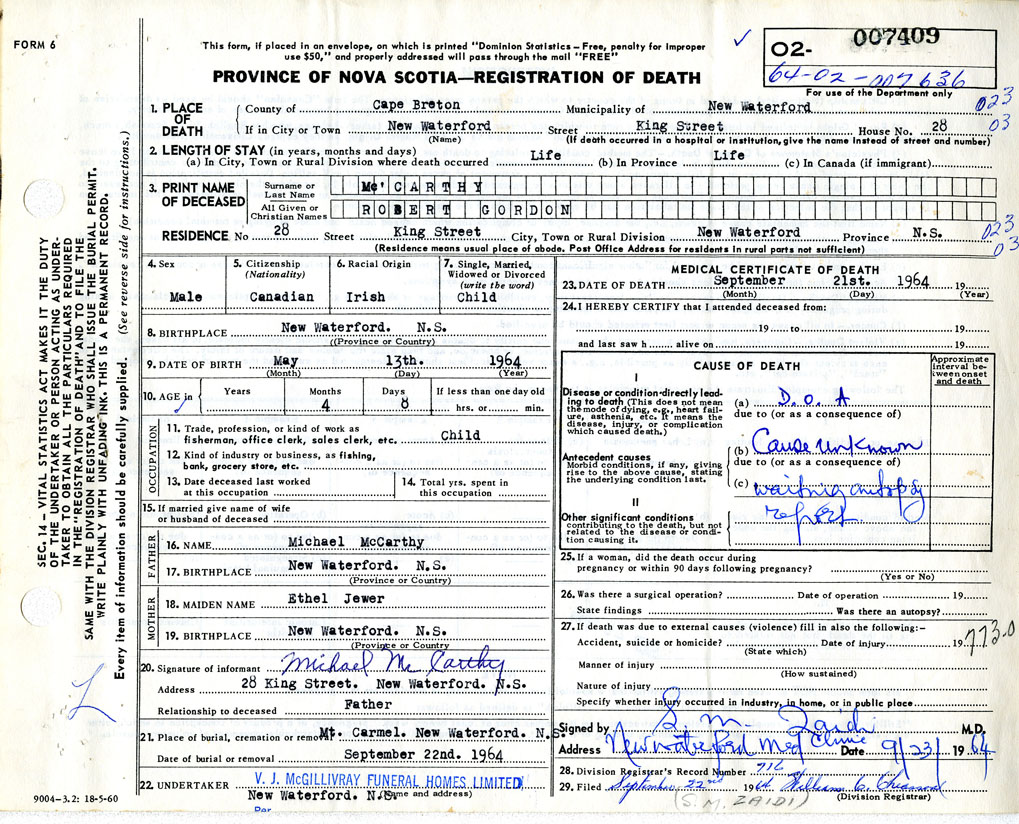 FORM 6
This form, if placed in an envelope, on which is printed "Dominion Statistics – Free, penalty for improper
use $50," and properly addressed will pass through the mail "FREE"
PROVINCE OF NOVA SCOTIA—REGISTRATION OF DEATH
✓
02- 007409
64-02-007636
For use of the Department only
SEC. 14 – VITAL STATISTICS ACT MAKES IT THE DUTY
OF THE UNDERTAKER OR PERSON ACTING AS UNDER-
TAKER TO OBTAIN ALL THE PARTICULARS REQUIRED
IN THE "REGISTRATION OF DEATH" AND TO FILE THE
SAME WITH THE DIVISION REGISTRAR WHO SHALL ISSUE THE BURIAL PERMIT.
WRITE PLAINLY WITH UNFADING INK. THIS IS A PERMANENT RECORD.
Every item of information should be carefully supplied. (See reverse side for instructions.)
1. PLACE OF DEATH
County of Cape Breton Municipality of New Waterford 023
If in City or Town New Waterford Street King Street House No. 28 03
(Name) (If death occurred in a hospital or institution, give the name instead of street and number)
2. LENGTH OF STAY (in years, months and days)
(a) In City, Town or Rural Division where death occurred Life (b) In Province Life (c) In Canada (if immigrant)
3. PRINT NAME OF DECEASED
Surname or Last Name Mc'CARTHY
All Given or Christian Names ROBERT GORDON
RESIDENCE No 28 Street King Street City, Town or Rural Division New Waterford Province N.S. 023
03
(Residence means usual place of abode. Post Office Address for residents in rural parts not sufficient)
4. Sex
Male
5. Citizenship
(Nationality)
Canadian
6. Racial Origin
Irish
7. Single, Married,
Widowed or Divorced
(write the word)
Child
8. BIRTHPLACE New Waterford. N.S.
((Province or Country)
9. DATE OF BIRTH May 13th. 1964
(Month) (Day) (Year)
10. AGE in Years Months Days If less than one day old
✓ 4 8 hrs. or min.
OCCUPATION
11. Trade, profession, or kind of work as
fisherman, office clerk, sales clerk, etc. Child
12. Kind of industry or business, as fishing,
bank, grocery store, etc.
13. Date deceased last worked
at this occupation
14. Total yrs. spent in
this occupation
15. If married give name of wife
or husband of deceased
FATHER
16. NAME Michael McCarthy
17. BIRTHPLACE New Waterford. N.S.
(Province or Country)
MOTHER
18. MAIDEN NAME Ethel Jewer
19. BIRTHPLACE New Waterford. N.S.
(Province or Country)
20. Signature of informant Michael Mc Carthy
Address 28 King Street. New Waterford. N.S.
Relationship to deceased Father
21. Place of burial, cremation or removal Mt. Carmel. New Waterford. N.S.
Date of burial or removal September 22nd. 1964
22. UNDERTAKER V. J. McGILLIVRAY FUNERAL HOMES LIMITED
New Waterford. N.S. (Name and address)
Per
9004–3.2: 18-5-60
MEDICAL CERTIFICATE OF DEATH
23. DATE OF DEATH September 21st. 1964 19
(Month) (Day) (Year)
24. I HEREBY CERTIFY that I attended deceased from:
19 to 19
and last saw h alive on 19
CAUSE OF DEATH
Approximate interval between onset and death
I
Disease or condition directly lead-
ing to death (This does not mean
the mode of dying, e.g., heart fail-
ure, asthenia, etc. It means the
disease, injury, or complication
which caused death.)
(a) D.O.A
due to (or as a consequence of)
Antecedent causes
Morbid conditions, if any, giving
rise to the above cause, stating
the underlying condition last.
(b) Cause unknown
due to (or as a consequence of)
(c) waiting autopsy
report.
II
Other significant conditions
contributing to the death, but not
related to the disease or condi-
tion causing it.
25. If a woman, did the death occur during
pregnancy or within 90 days following pregnancy?
(Yes or No)
26. Was there a surgical operation? Date of operation 19
State findings Was there an autopsy?
27. If death was due to external causes (violence) fill in also the following:–
Accident, suicide or homicide? Date of injury 19
773.0
(State which)
Manner of injury
(How sustained)
Nature of injury
Specify whether injury occurred in industry, in home, or in public place
Signed by S. M. Zaidi M.D.
Address New Waterford Med Clinic Date 9/23/ 1964
28. Division Registrar's Record Number 716
29. Filed September 22nd 1964 William C.
(Division Registrar)
(S. M. ZAIDI)